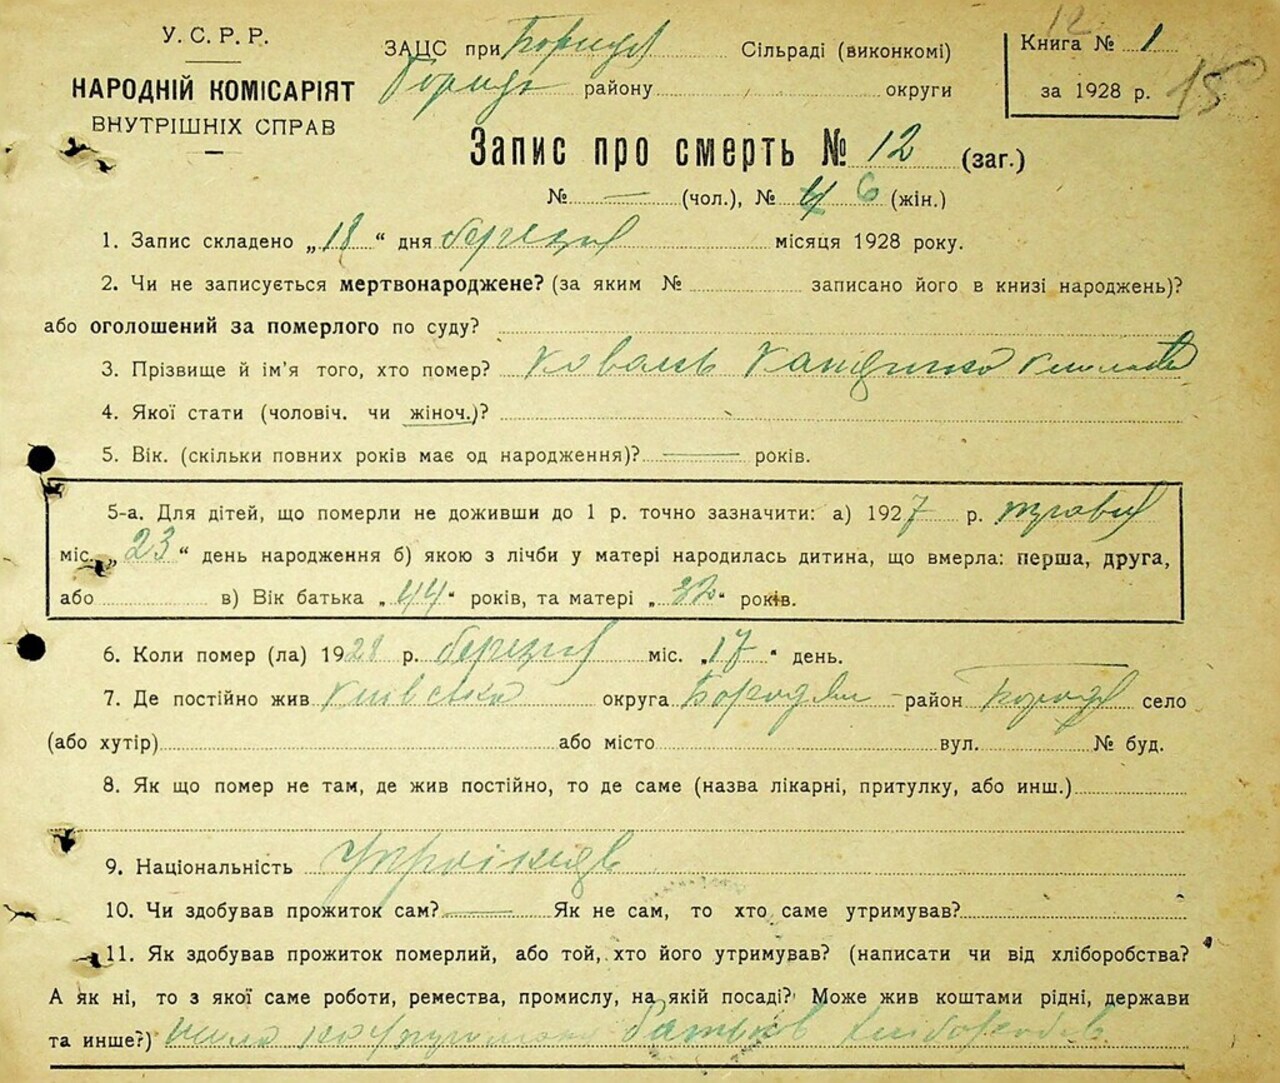 У. С. Р. Р.
НАРОДНІЙ КОМІСАРІЯТ
ВНУТРІШНІХ СПРАВ
ЗАЦС при Сільраді (виконкомі)
району округи
12
Книга № 1
за 1928 р. 15
Запис про смерть № 12 (заг.)
№ — (чол.), № 6 (жін.)
1. Запис складено „18“ дня березня місяця 1928 року.
2. Чи не записується мертвонароджене? (за яким № записано його в книзі народжень)?
або оголошений за померлого по суду?
3. Прізвище й ім'я того, хто помер? Коваль
4. Якої стати (чоловіч. чи жіноч.)?
5. Вік. (скільки повних років має од народження)? — років.
5-а. Для дітей, що померли не доживши до 1 р. точно зазначити: а) 1927 р. травня
міс. „23“ день народження б) якою з лічби у матері народилась дитина, що вмерла: перша, друга,
або в) Вік батька „44“ років, та матері „32“ років.
6. Коли помер (ла) 1928 р. березня міс. „17“ день.
7. Де постійно жив Київська округа Бородян район Бород село
(або хутір) або місто вул. № буд.
8. Як що помер не там, де жив постійно, то де саме (назва лікарні, притулку, або инш.)
9. Національність
10. Чи здобував прожиток сам? — Як не сам, то хто саме утримував?
11. Як здобував прожиток померлий, або той, хто його утримував? (написати чи від хліборобства?
А як ні, то з якої саме роботи, ремества, промислу, на якій посаді? Може жив коштами рідні, держави
та инше?) батьков